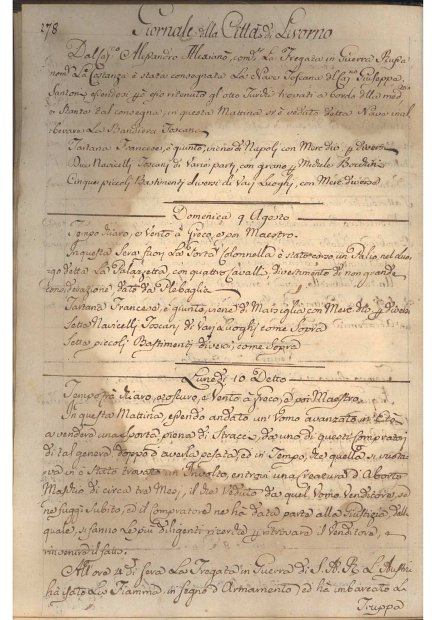 278 Giornale della Città di Livorno
Dal Cap.º Alessandro Alexiano, com.te La Fregata in Guerra Russa
nom.ta La Costanza è stata consegnata La Nave Toscana del Cap. Giuseppe
Santoni essendosi p esso ritenuto gli otto Turchi trovati a bordo della med
e stante tal consegna, in questa Mattina si è veduto detta Nave inal
berare La Bandiera Toscana
Tartana Francese, è giunto, viene di Napoli con Merc die p diversi
Due Navicelli Toscani di Varie parti con grano p Michele
Cinque piccoli Bastimenti diversi di Varj Luoghi, con Merc diverse
Domenica 9 Agosto
Tempo chiaro, e Vento a Greco, e poi Maestro.
In questa Sera fuori La Porta Colonnella è stato corso un Palio nel luo
go detto La Palazzetta, con quattro Cavalli, divertimento di non grande
considerazione dato da Plebaglia
Tartana Francese, è giunto, viene di Marsiglia con Merc die p diversi
Sette Navicelli Toscani di Varj Luoghi come Sopra
Sette piccoli Bastimenti diversi, come Sopra
Lunedi 10 Detto
Tempo trà chiaro, e oscuro, e Vento a Greco, e poi Maestro
In questa Mattina, essendo andato un Uomo avanzato in Età
a vendere una Sporta piena di Stracci, da uno di questi Compratori
di tal genere doppo d'averla pesata, ed in Tempo, che quella si vuotava
vi è stato trovato un Involto, entrovi una Creatura d'Aborto
Mastio di circa tre Mesi, il che Veduto da quel Uomo Venditore, se
ne fuggì Subito, ed il Compratore ne hà dato parte alla Giustizia dalla
quale si fanno Le più diligenti ricerche p ritrovare il Venditore, e
rinvenire il fatto.
All'ore 4 di Sera La Fregata in Guerra di S. A. R. L'Austria
hà fatto La Fiamma in segno d'Armamento ed hà imbarcato La
Truppa